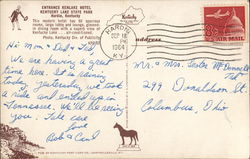 ENTRANCE KENLAKE HOTEL
KENTUCKY LAKE STATE PARK
Hardin, Kentucky
This modern hotel has 60 spacious
rooms, large lobby and lounge,
in dining room with a superb view of
Kentucky Lake
Photo, Kentucky Div. of Publicity
Hi Mom - Dad + Ted,
We are having a great
time here. It is raining
today. Yesterday we took
a ride on
Tennessee. We'll be seeing
you. Take care
Love
Bob & Carol
KENTUCKY
HARDIN
SEP 12
PM
1964
KY.
Address
8¢
AIR MAIL
Mr. & Mrs. Lester McDonnell
Ted
299 Donaldson St.
Columbus, Ohio